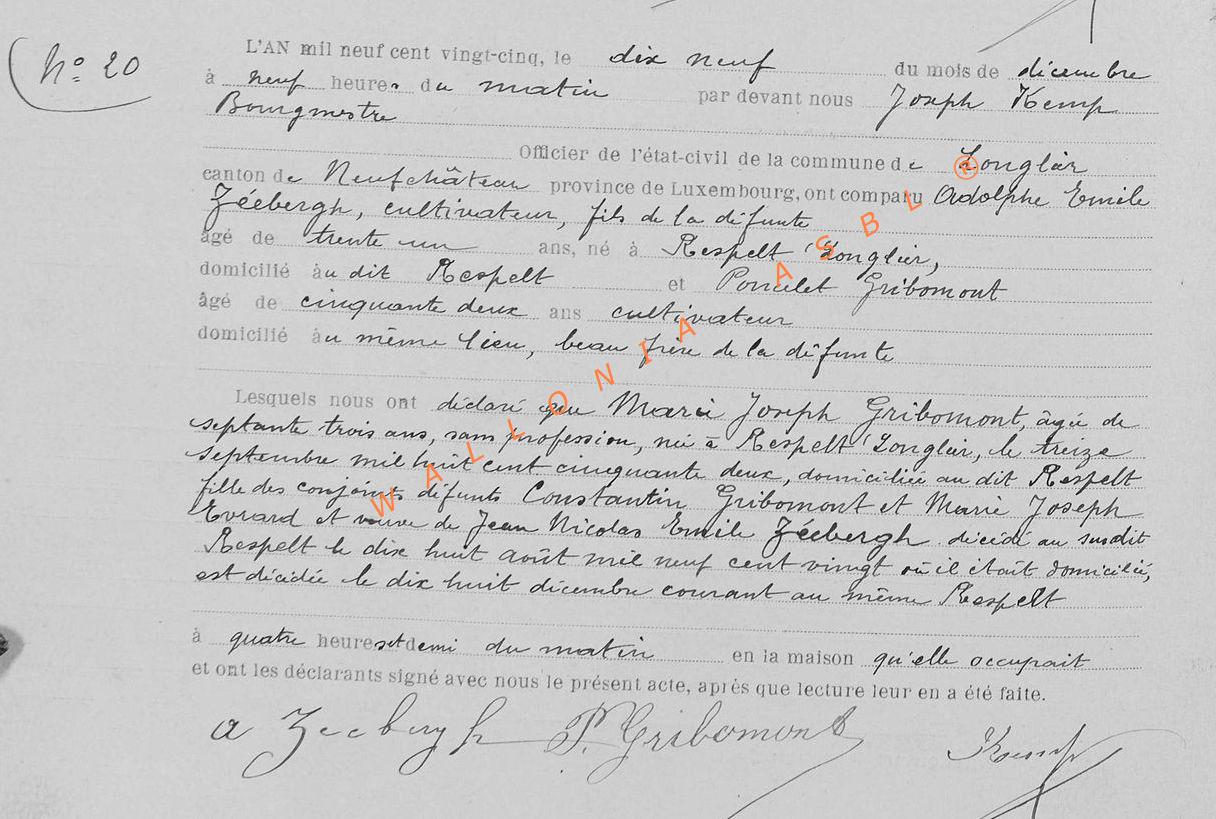 N° 20
L'AN mil neuf cent vingt-cinq, le dix neuf du mois de décembre
à neuf heures du matin par devant nous Joseph Kemp
Bourgmestre
Officier de l'état-civil de la commune de Longlier
canton de Neufchâteau province de Luxembourg, ont comparu Adolphe Emile
Zéebergh, cultivateur, fils de la défunte
âgé de trente un ans, né à Respelt Longlier,
domicilié au dit Respelt et Poncelet Gribomont
âgé de cinquante deux ans cultivateur
domicilié au même lieu, beau frère de la défunte
Lesquels nous ont déclaré que Marie Joseph Gribomont, âgée de
septante trois ans, sans profession, née à Respelt Longlier, le treize
septembre mil huit cent cinquante deux, domiciliée au dit Respelt
fille des conjoints défunts Constantin Gribomont et Marie Joseph
Evrard et veuve de Jean Nicolas Emile Zéebergh décédé au susdit
Respelt le dix huit août mil neuf cent vingt où il était domicilié,
est décédée le dix huit décembre courant au même Respelt
à quatre heures et demi du matin en la maison qu'elle occupait
et ont les déclarants signé avec nous le présent acte, après que lecture leur en a été faite.
a Zeebergh P. Gribomont Kemp
WALLONIA ASBL ®